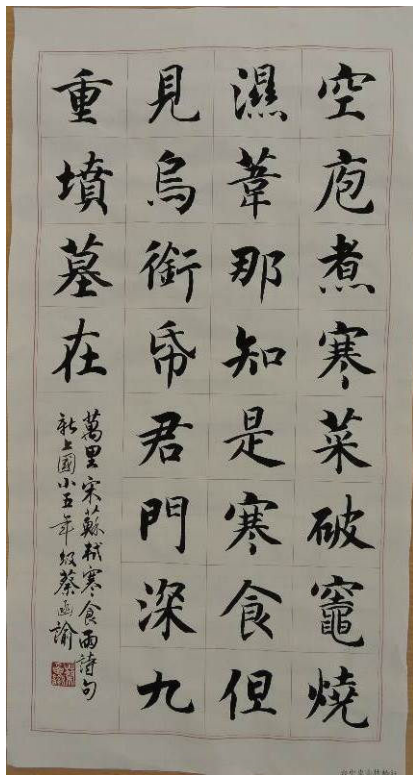 空庖煮寒菜破竈燒
濕葦那知是寒食但
見烏銜帋君門深九
重墳墓在
萬里宋蘇軾寒食雨詩句
新上國小五年級蔡函諭